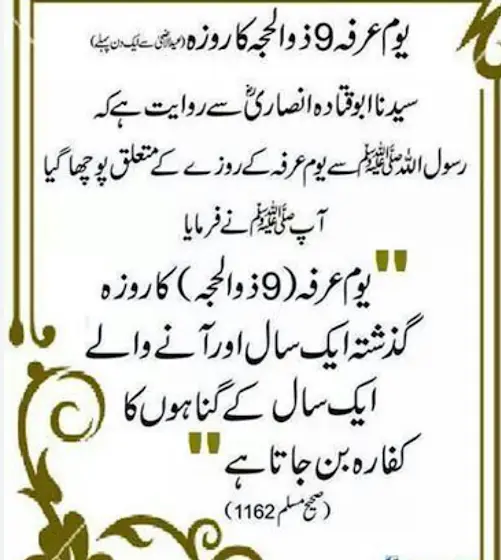 یوم عرفہ 9 ذوالحجہ کا روزہ (عیدالاضحیٰ سے ایک دن پہلے)
سیدنا ابو قتادہ انصاریؓ سے روایت ہے کہ
رسول اللہ ﷺ سے یوم عرفہ کے روزے کے متعلق پوچھا گیا
آپ ﷺ نے فرمایا
"یوم عرفہ (9 ذوالحجہ) کا روزہ
گذشتہ ایک سال اور آنے والے
ایک سال کے گناہوں کا
کفارہ بن جاتا ہے"
(صحیح مسلم 1162)